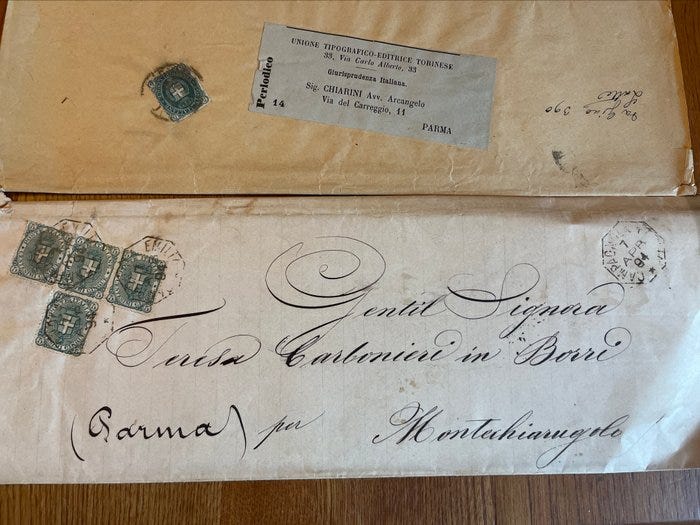 UNIONE TIPOGRAFICO-EDITRICE TORINESE
33, Via Carlo Alberto, 33
Giurisprudenza Italiana.
Sig. CHIARINI Avv. Arcangelo
Via del Carreggio, 11
PARMA
Periodico
14
390
7
APR
94
Gentil Signora
Teresa Carbonieri in Borri
(Parma) per Montechiarugolo